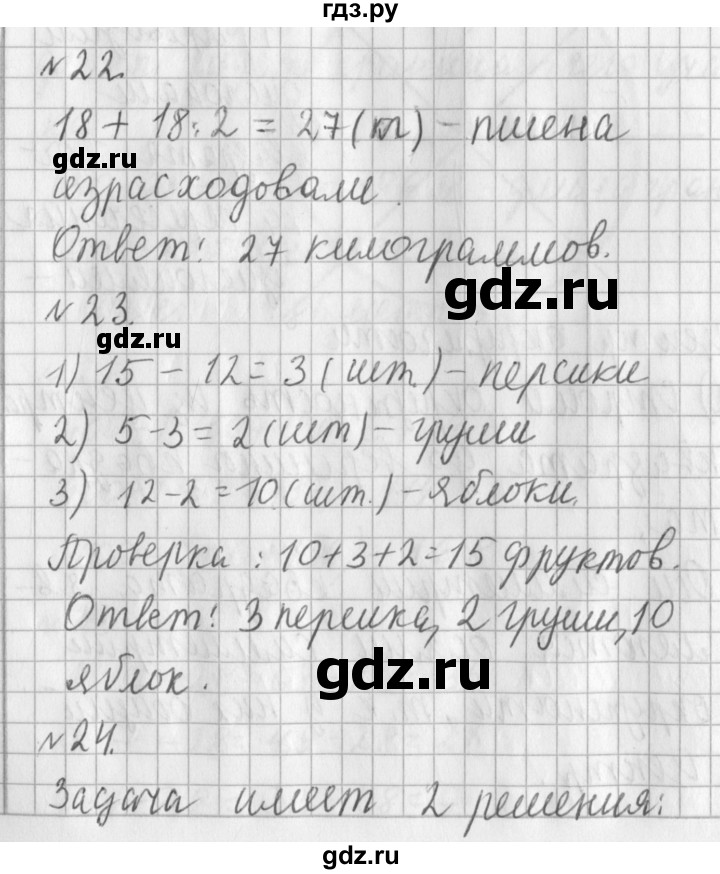 гдз.ру
№22.
18 + 18:2 = 27(кг) - пшена
gdz.ru
израсходовали.
Ответ: 27 килограммов.
gdz.ru
№23.
gdz.ru
1) 15 - 12 = 3 (шт.) - персики
2) 5-3 = 2 (шт) - груши
3) 12-2 = 10.(шт.) - яблоки.
Проверка : 10+3+2=15 фруктов.
Ответ: 3 персика, 2 груши, 10
яблок.
gdz.ru
№24.
Задача имеет 2 решения:
gdz.ru